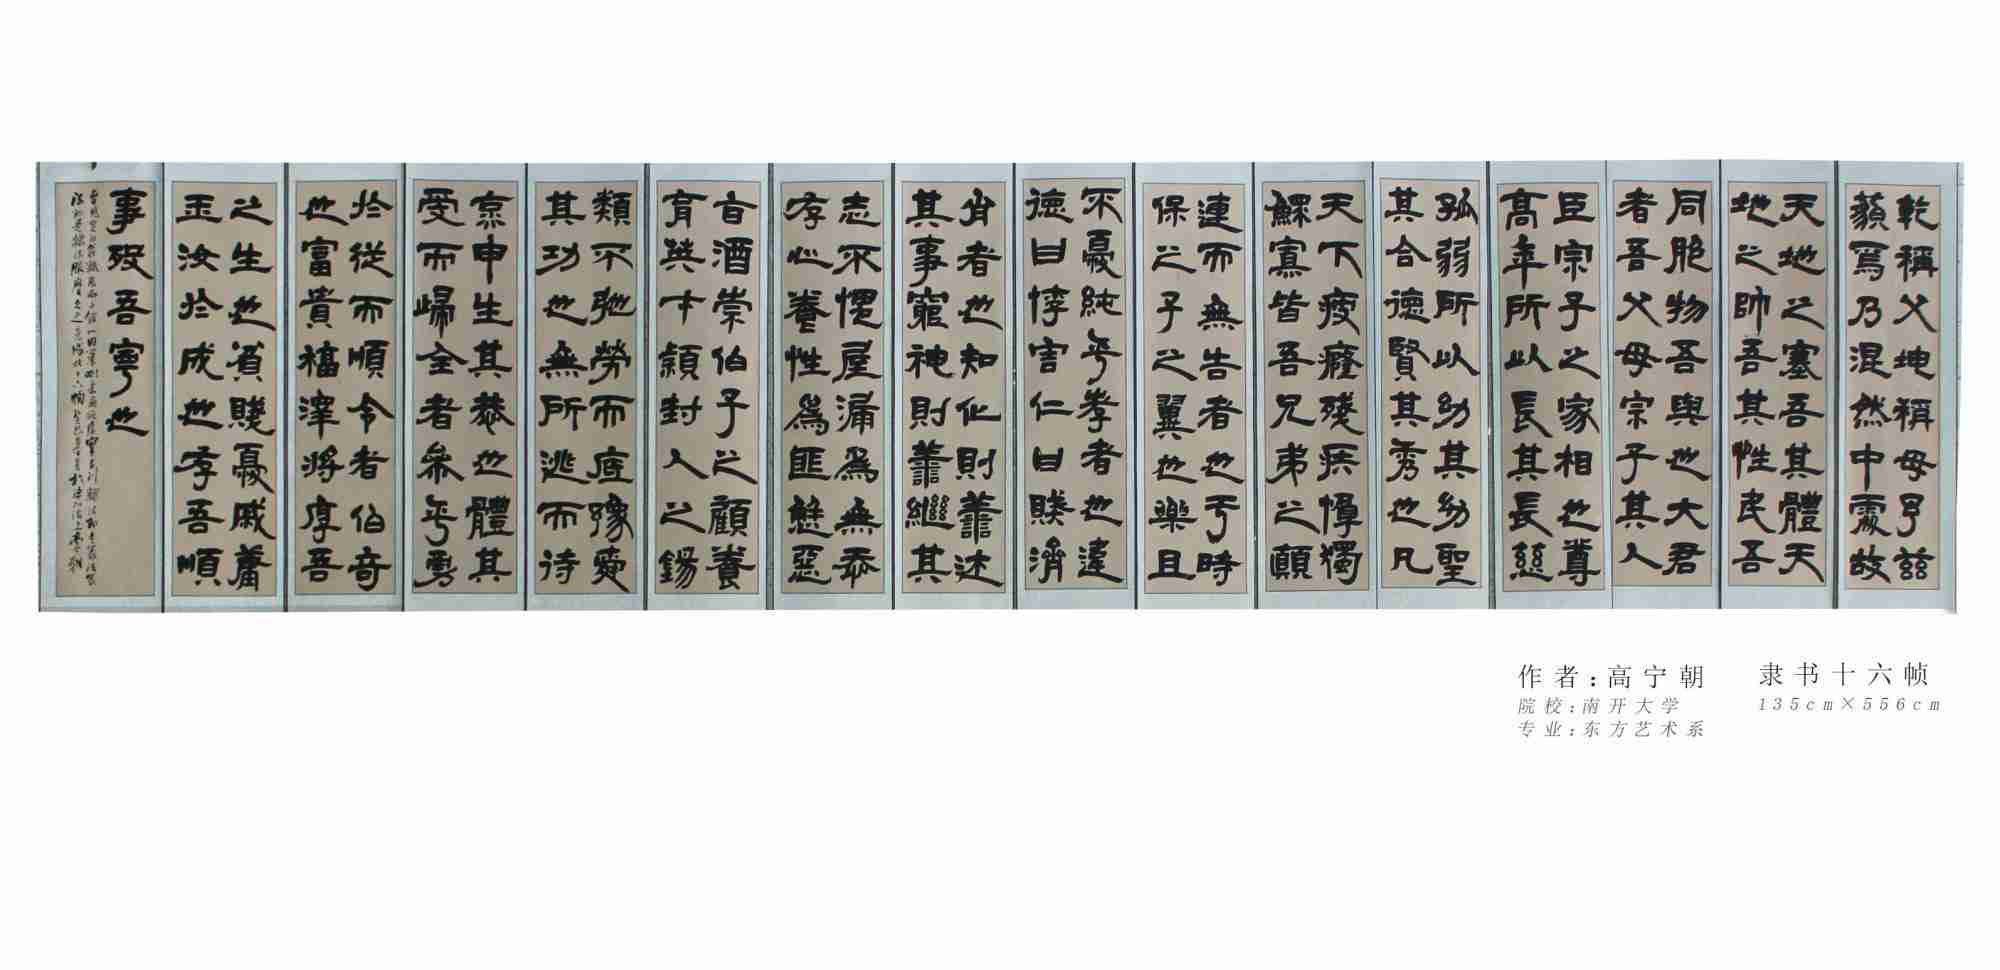 乾稱父坤稱母予茲
藐焉乃混然中處故
天地之塞吾其體天
地之帥吾其性民吾
同胞物吾與也大君
者吾父母宗子其人
臣宗子之家相也尊
高年所以長其長慈
孤弱所以幼其幼聖
其合德賢其秀也凡
天下疲癃殘疾惸獨
鰥寡皆吾兄弟之顛
連而無告者也于時
保之子之翼也樂且
不憂純乎孝者也違
德曰悖害仁曰賊濟
肖者也知化則善述
其事窮神則善繼其
志不愧屋漏為無忝
存心養性為匪懈惡
旨酒崇伯子之顧養
育英才潁封人之錫
類不弛勞而底豫舜
其功也無所逃而待
烹申生其恭也體其
受而歸全者參乎勇
於從而順令者伯奇
也富貴福澤將厚吾
之生也貧賤憂戚庸
玉汝於成也存吾順
事歿吾寧也
隶书十六帧
135cm×556cm
作者:高宁朝
院校:南开大学
专业:东方艺术系